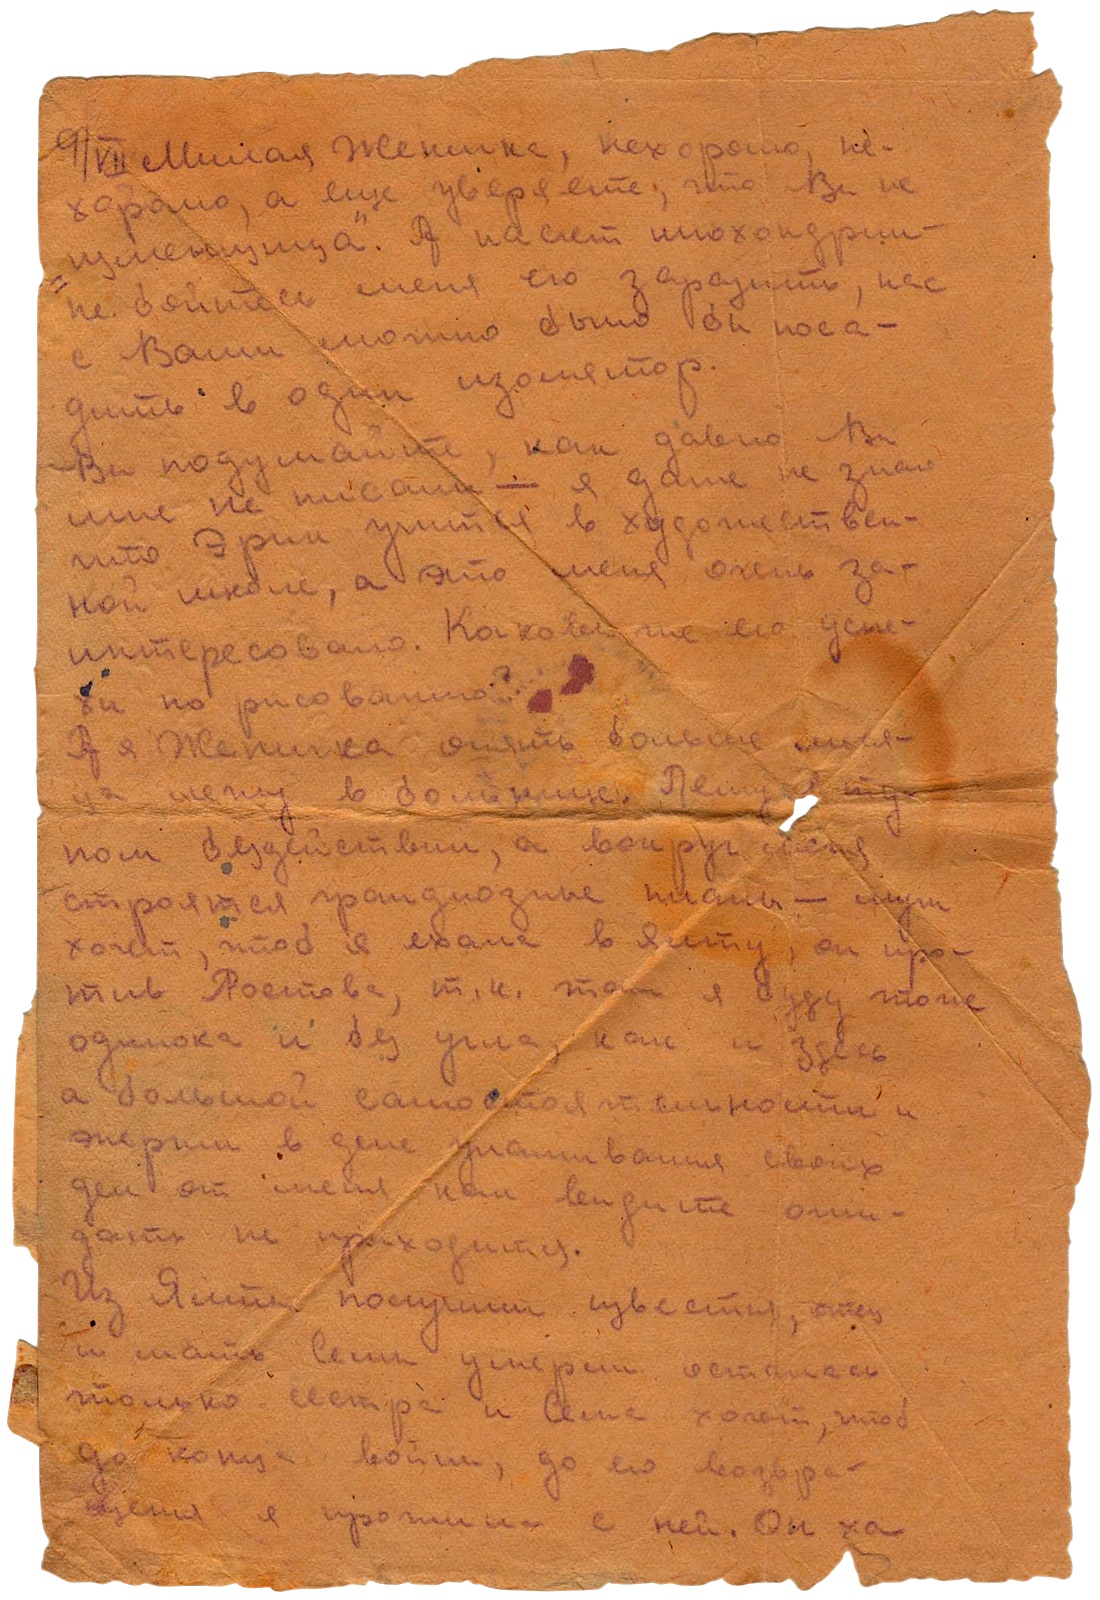 9/VII Милая Женичка, нехорошо, не-
хорошо, а еще уверяете, что Вы не
"изменщица". А насчет ипохондрии-
не бойтесь меня ею заразить, нас
с Вами можно было бы поса-
дить в один изолятор.
Вы подумайте, как давно Вы
мне не писали — я даже не знаю
что Эрик учится в художествен-
ной школе, а это меня очень за-
интересовало. Каковы же его успе-
хи по рисованию?
А я Женичка опять больше меся-
ца лежу в больнице. Лежу в ту-
пом бездействии, а вокруг меня
строятся грандиозные планы — муж
хочет, чтоб я ехала в Ялту, он про-
тив Ростова, т.к. там я буду тоже
одинока и без угла, как и здесь
а большой самостоятельности и
энергии в деле улаживания своих
дел от меня как видите ожи-
дать не приходится.
Из Ялты получили известия, отец
и мать Сени умерли осталась
только сестра и Сеня хочет, чтоб
до конца войны, до его возвра-
щения я прожила с ней. Он ха